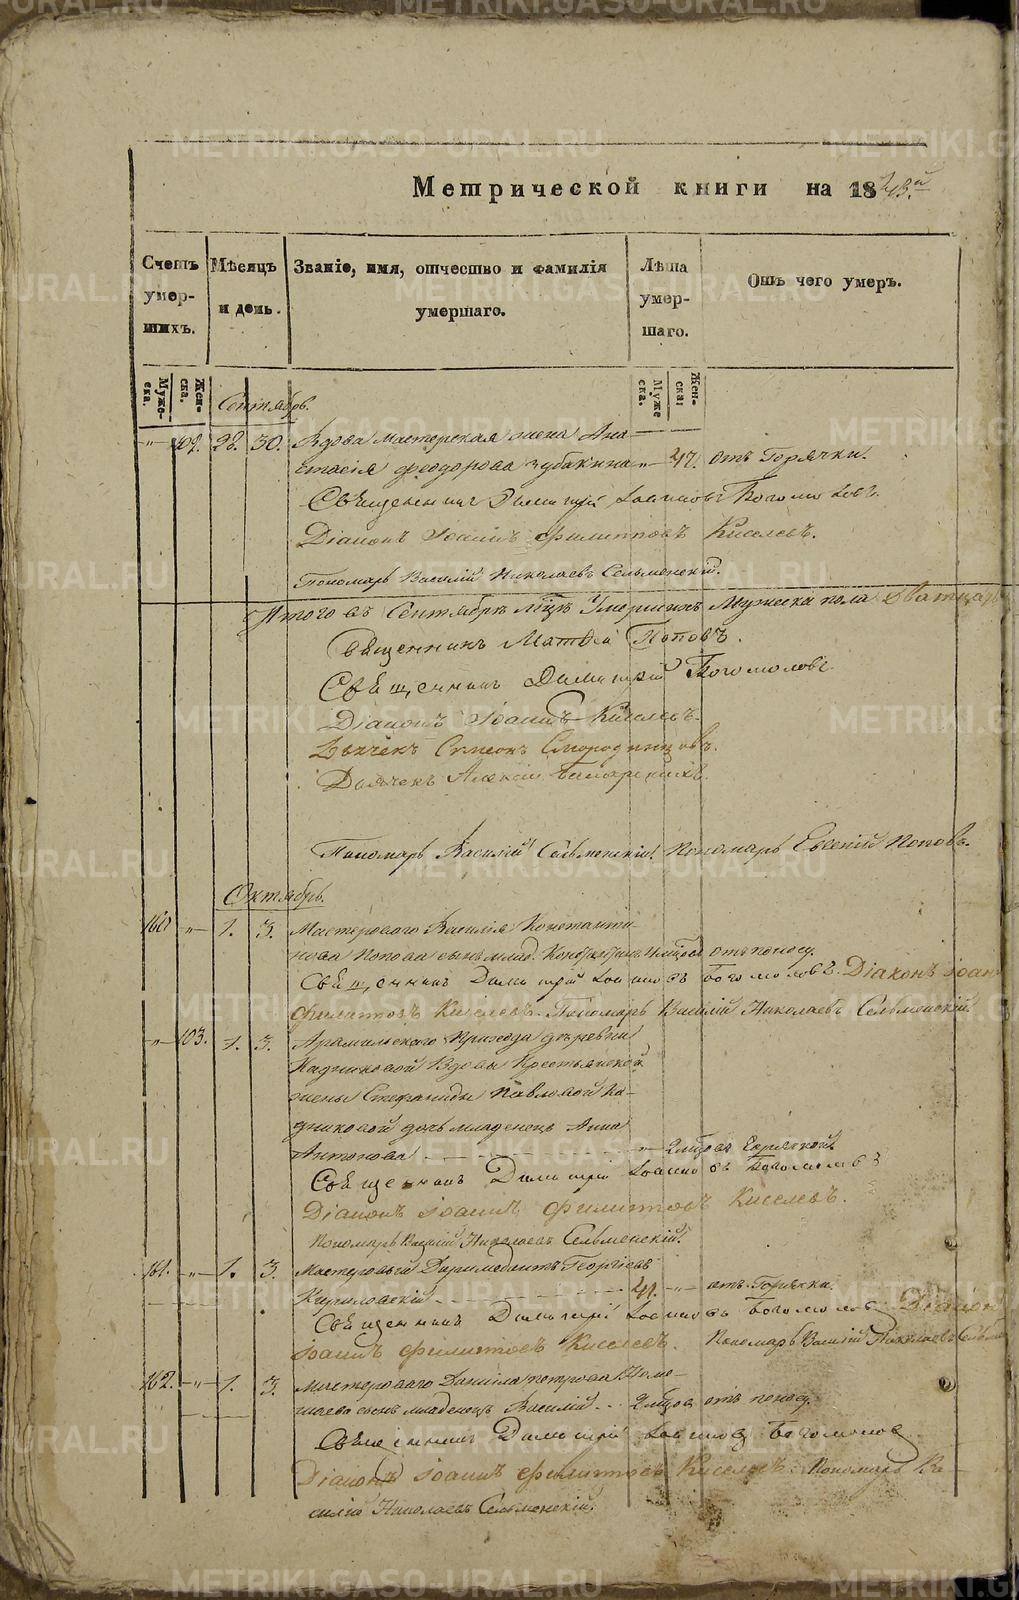 Метрической книги на 1843.й
Счетъ умер-шихъ.
Мѣсяцъ и день.
Званіе, имя, отчество и фамилія умершаго.
Лѣта умер-шаго.
Отъ чего умеръ.
Муже-ска.
Жен-ска.
Муже ска.
Жен-ска
Сентябрь.
28. 30. Вдова мастерская жена Ана-
стасія Феодорова Зубакина 47. отъ Горячки.
Священникъ Димитрій Іоанновъ Богомоловъ.
Діаконъ Іоаннъ Филипповъ Киселевъ.
Пономарь Василій Николаевъ Сельменскій.
Итого въ Сентябрѣ мцѣ Умершихъ Мужеска пола
Священникъ Матѳей Поповъ.
Священникъ Димитрій Богомоловъ
Діаконъ Іоаннъ Киселевъ.
Дьячекъ Симеонъ Смородинцовъ.
Дьячекъ Алексій
Пономарь Василій Сельменскій. Пономарь Евсеній Поповъ.
Октябрь.
160 " 1. 3. Мастероваго Василія Константи-
нова Попова сынъ млад. отъ поносу.
Священникъ Димитрій Іоанновъ Богомоловъ. Діаконъ Іоаннъ
Филипповъ Киселевъ. Пономарь Василій Николаевъ Сельменскій.
" 103. 1. 3. Арамильскаго Прихода деревни
Кадниковой Вдовы Крестьянской
жены Стефаниды Павловой Ка-
дниковой дочь младенецъ Анна
Антонова
Священникъ Димитрій Іоанновъ Богомоловъ
Діаконъ Іоаннъ Филипповъ Киселевъ.
Пономарь Василій Николаевъ Сельменскій.
161. " 1. 3. Мастеровый Георгіевъ
Кириловскій 41. " отъ Горячки
Священникъ Димитрій Іоанновъ Богомоловъ Діаконъ
Іоаннъ Филипповъ Киселевъ. Пономарь Василій Николаевъ
162. " 1. 3. Мастероваго Даніила Петрова
сынъ младенецъ Василій отъ поносу.
Священникъ Димитрій Іоанновъ Богомоловъ
Діаконъ Іоаннъ Филипповъ Киселевъ. Пономарь Ва
силій Николаевъ Сельменскій.
METRIKI.GASO-URAL.RU